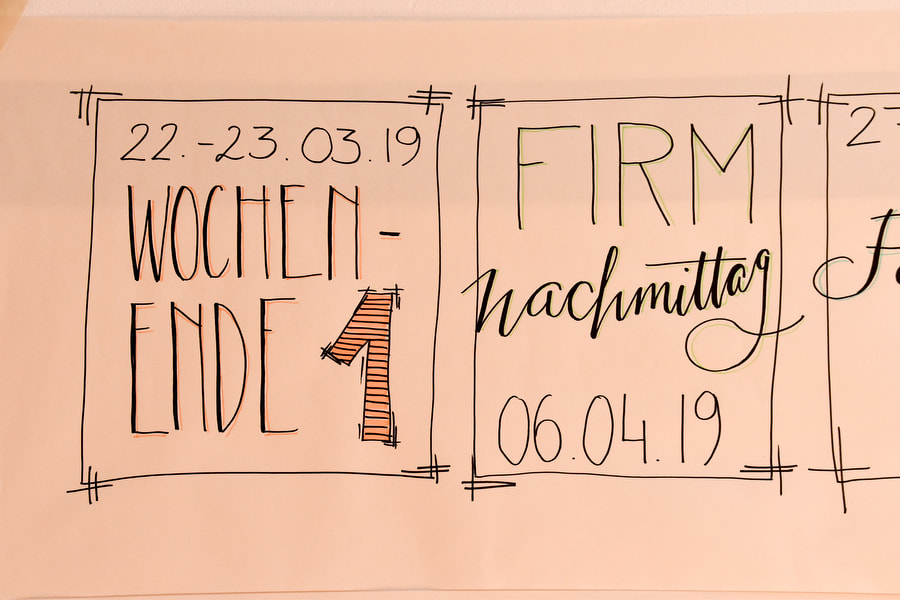 22.-23.03.19
WOCHEN-
ENDE 1
FIRM
nachmittag
06.04.19
27